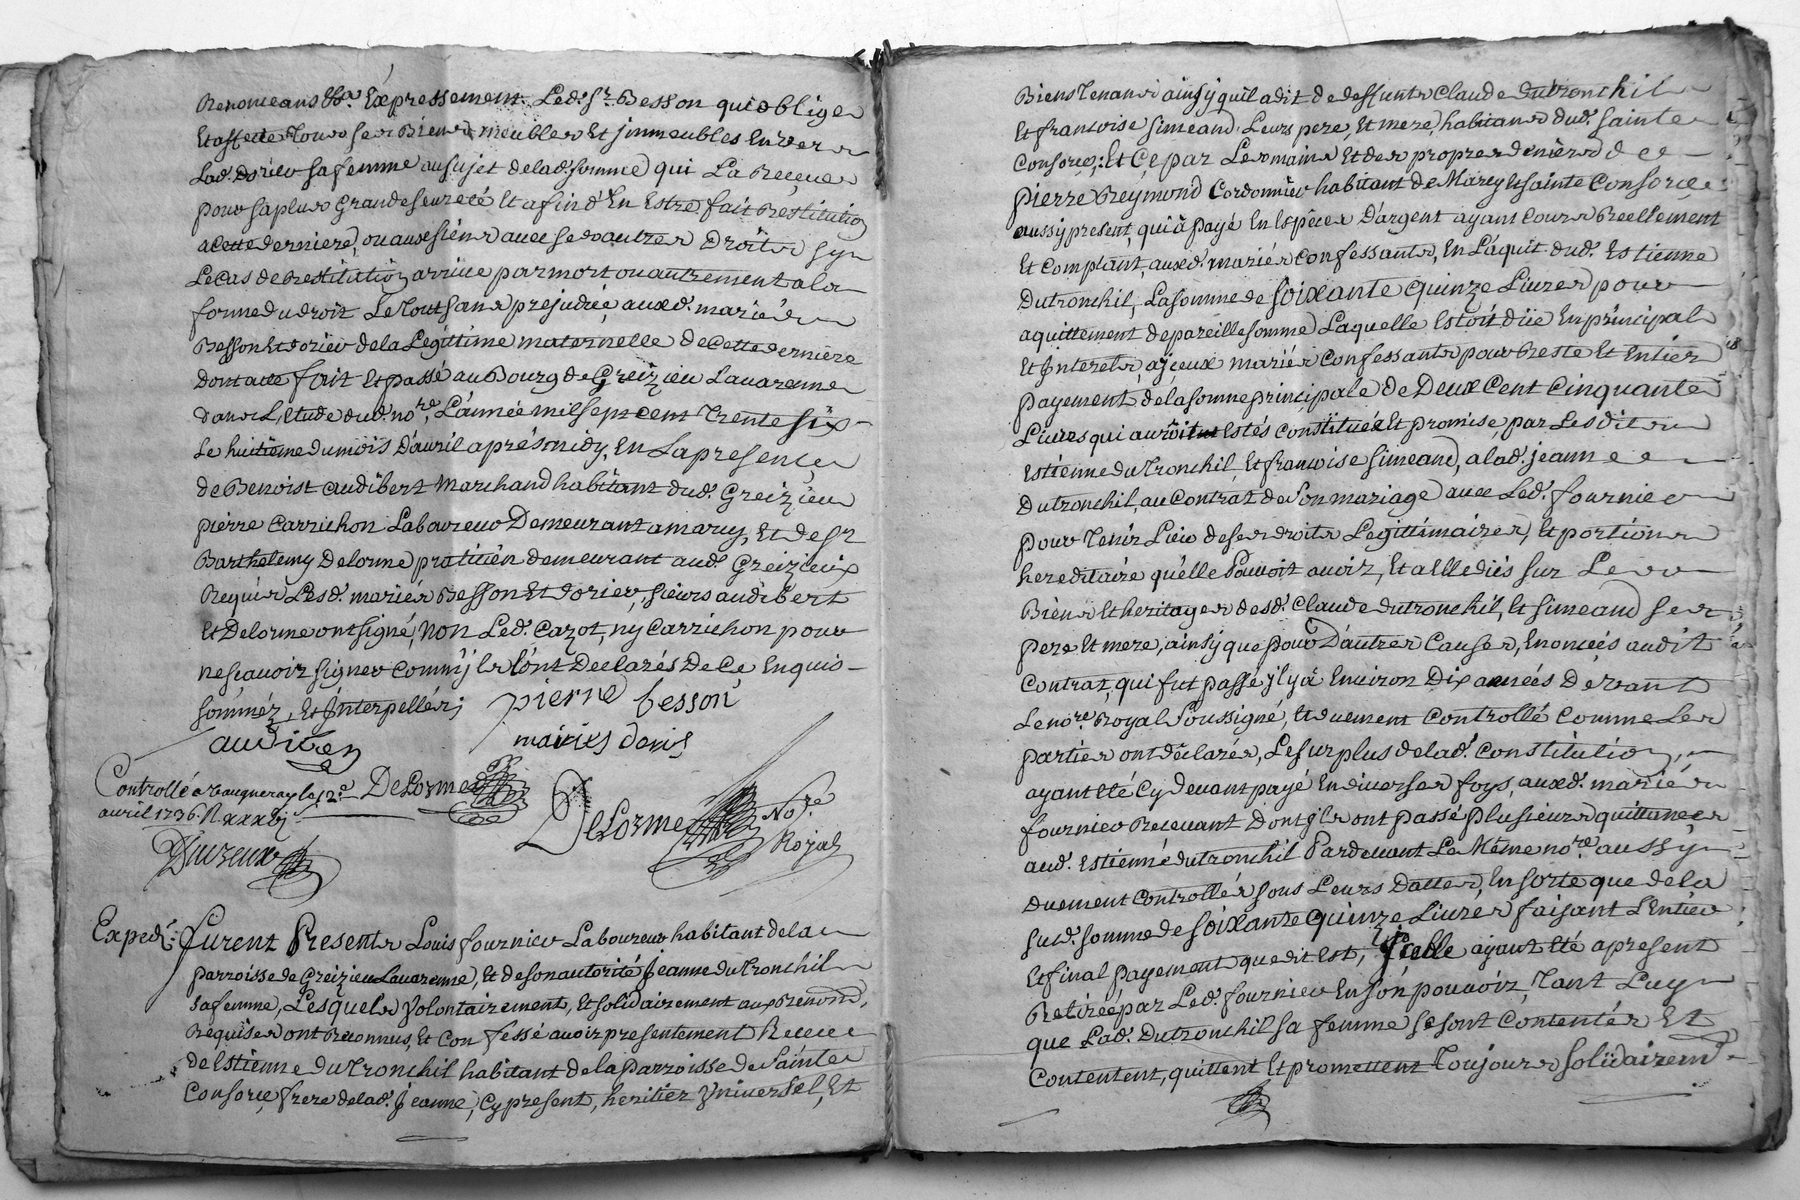 Renonceans &c. Expressement Led. Sr. Besson qui oblige
Et affecte Tous ses Biens meubles Et jmmeubles Envers
Lad. Dorieu sa femme au sujet de lad. somme qui La Receue
pour sa plus Grande seureté Et afin d'En Estre fait Restitution
a Cette derniere, ou aux siens avec ses autres Droits sy
Le Cas de Restitution arrive par mort ou autrement a la
forme du droit Le Tout sans prejudice auxd. mariés
Besson Et dorieu de la Legittime maternelle de Cette derniere
Dont acte fait Et passé au Bourg de Greizieu Lavarenne
dans L'Etude dud. nore. L'année mil sept cent Trente six
Le huitieme du mois D'avril aprés midy, En La presence
de Benoist audibert Marchand habitant dud. Greizieu
pierre Carrichon Laboureur Demeurant a marcy, Et de Sr
Barthelemy Delorme praticien demeurant aud. Greizieux
Requis Lesd. mariés Besson Et dorieu, sieurs audibert
Et Delorme ont signé, Non Led. Cazot, ny Carrichon pour
ne sçavoir signer Comm'jls l'ont Declarés De Ce Enquis
sommés, Et Interpellés;
pierre besson
audiber
DeLorme
DeLorme Nore. Royal
Controllé a vaugneray le 12e.
avril 1736. R xxxvj
Exped. furent Presents Louis fournier Laboureur habitant de la
parroisse de Greizieu Lavarenne, Et de son autorité Jeanne du Tronchil
sa femme, Lesquels Volontairement, Et solidairement aux Renond.
Requises ont Reconnus, Et Confessé avoir presentement Receu
de Estienne du Tronchil habitant de la parroisse de Sainte
Consorce frere de lad. Jeanne, Cy present, heritier Vniversel, Et
Biens Tenant ainsy quil a dit de deffunts Claude dutronchil
Et francoise Simeand Leurs pere, Et mere, habitans dud. Sainte
Consorce; Et Ce par Les mains Et des propres deniers de
pierre Reymond Cordonnier habitant de Marcy Et sainte Consorce
aussy present, qui à payé En Espéces D'argent ayant Cours Reellement
Et Comptant, auxd. mariés Confessants, En L'aquit dud. Estienne
Dutronchil, La somme de soixante quinze Livres pour
aquittement de pareille somme Laquelle Estoit düe En principal
Et Interets, a jceux mariés Confessants pour Reste Et Entier
payement de la somme principale de Deux Cent Cinquante
Livres qui auroit Estés Constituée Et promise par Lesdits
Estienne du Tronchil Et francoise Simeand, a lad. jeanne
Dutronchil, au Contrat de Son mariage avec Led. fournier
pour Tenir Lieu de ses droits Legittimaires, Et portions
hereditaire qu'elle Pouvoit avoir, Et a elle diës sur Les
Biens Et heritages desd. Claude dutronchil, Et Simeand ses
pere Et mere, ainsy que pour D'autres Causes, Enoncées audit
Contrat, qui fut passé jl y à Environ Dix années Devant
Le nore. Royal Soussigné, Et duement Controllé Comme Les
parties ont déclarés, Le surplus de lad. Constitution,
ayant Eté Cy devant payé En diverses foys, auxd. mariés
fournier Recevant Dont jls ont passé plusieurs quittances
aud. Estienne dutronchil Pardevant Le Même nore. aussy
duement Controllés sous Leurs Dattes, En sorte que de la
susd. somme de soixante quinze Livres faisant L'Entier
Et final payement que dit Est, jcelle ayant Eté a present
Retirée par Led. fournier En son pouvoir, Tant Luy
que Lad. Dutronchil sa femme se sont Contentés Et
Contentent, quittent Et promettent Toujours solidairemt.